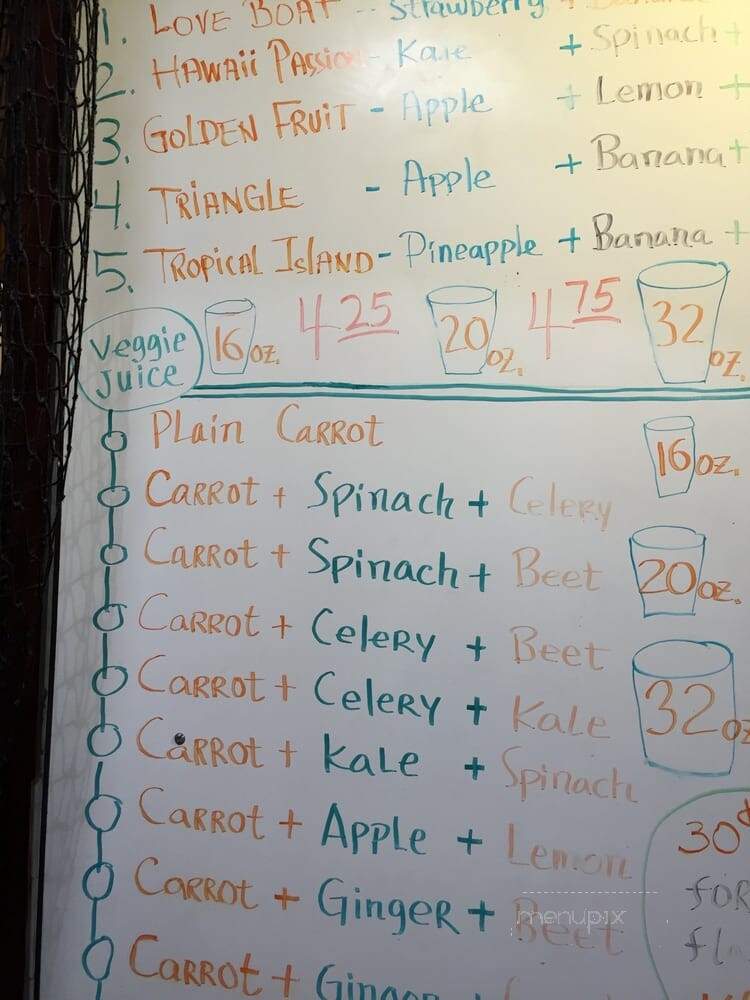 1. LOVE BOAT -- Strawberry + Banana
2. HAWAii PASSiON - Kale + Spinach +
3. GOLDEN FRUiT - Apple + Lemon +
4. TRiANGLE - Apple + Banana +
5. TROPiCAL ISLAND - Pineapple + Banana +
16 oz. 4 25 20 oz. 4 75 32 oz.
Veggie
Juice
PLain CARROt
16 oz.
CARROt + Spinach + CeleRy
CARROt + Spinach + Beet
20 oz.
CARROt + CeleRy + Beet
CARROt + CeleRy + Kale
32 oz
CARROt + KaLe + Spinach
CARROt + Apple + Lemon
30¢
CARROt + GingeR + Beet
foR
menupix
CARROt + Ginger +